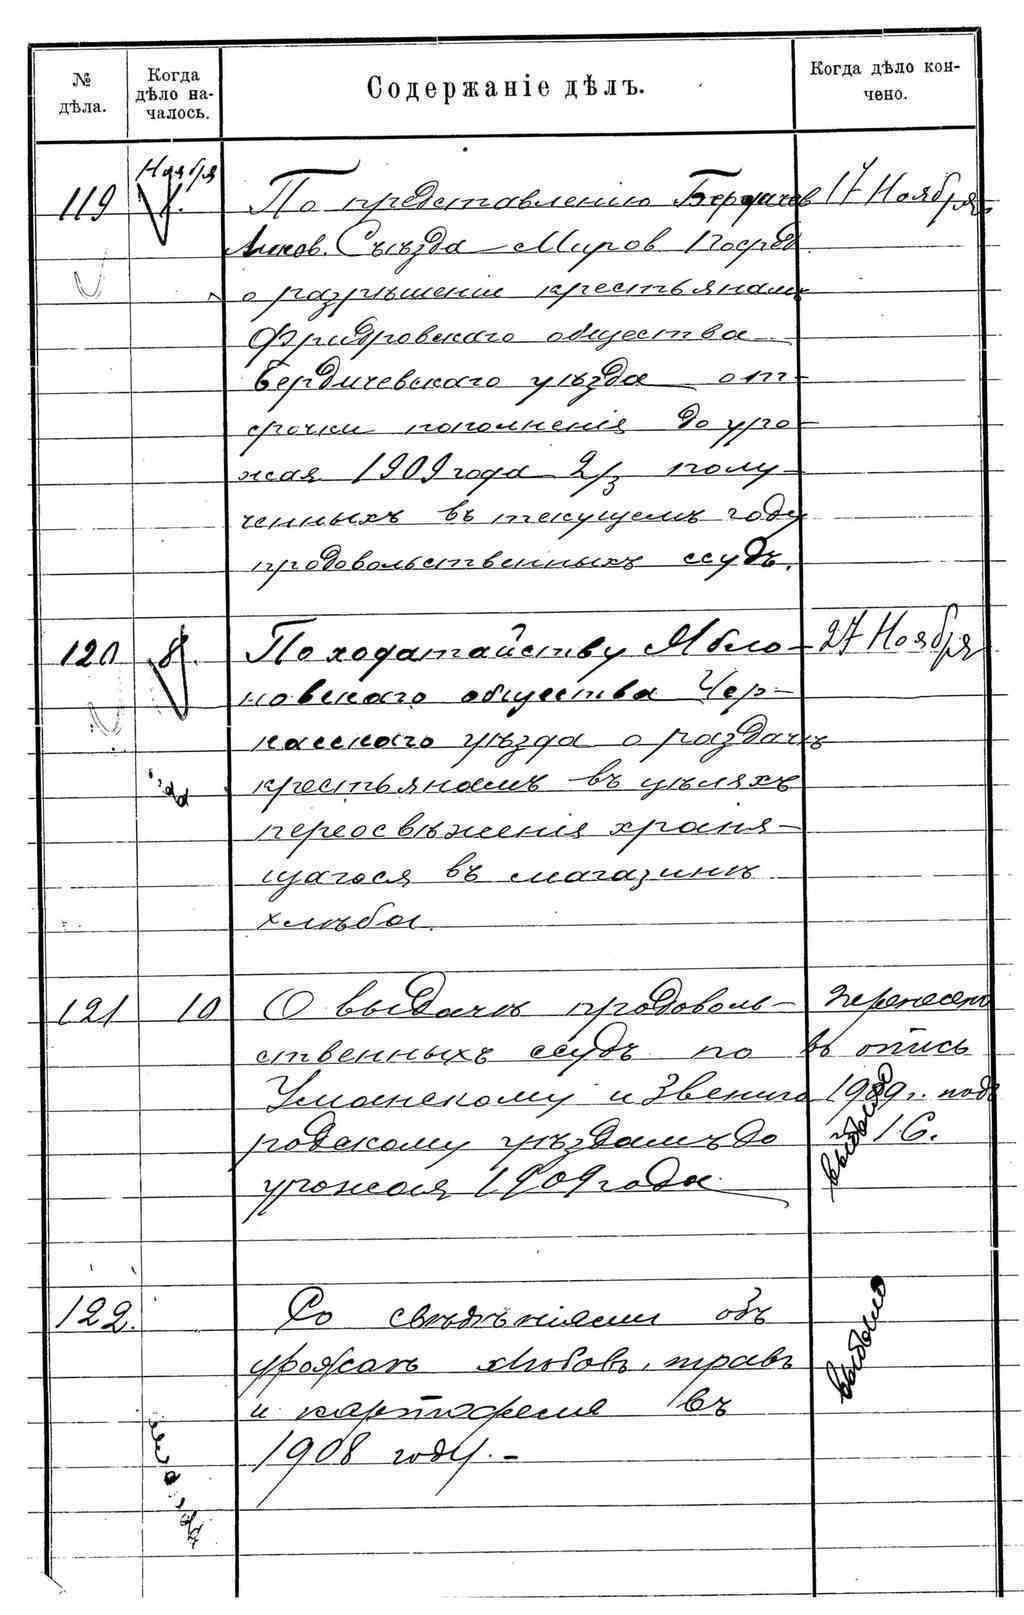 № дѣла.
Когда дѣло на-
чалось.
Содержаніе дѣлъ.
Когда дѣло кон-
чено.
Ноября
119 1. По представленію Бердичев 17 Ноября
Съѣзда Миров Посред
о разрѣшеніи крестьянамъ
общества
Бердичевскаго уѣзда от-
срочки пополненія до уро-
жая 1909 года 2/3 полу-
ченныхъ въ текущемъ году
продовольственныхъ ссудъ.
120 8. По ходатайству Ябло- 27 Ноября
новскаго общества Чер-
касскаго уѣзда о раздачѣ
крестьянамъ въ цѣляхъ
переосвѣженія храня-
щагося въ магазинѣ
хлѣба.
121 10 О выдачѣ продоволь- перенесено
ственныхъ ссудъ по въ опись
Уманскому и Звениго 1909 г. подъ
родскому уѣздамъ до № 16.
урожая 1909 года.
выбыло
122. Со свѣдѣніями объ
урожаѣ хлѣбовъ, травъ
и картофеля въ
1908 году. -
выбыло